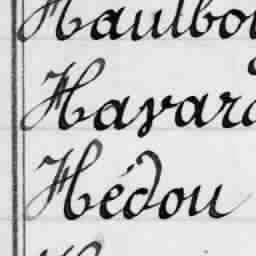 Hautbo
Havar
Hédou